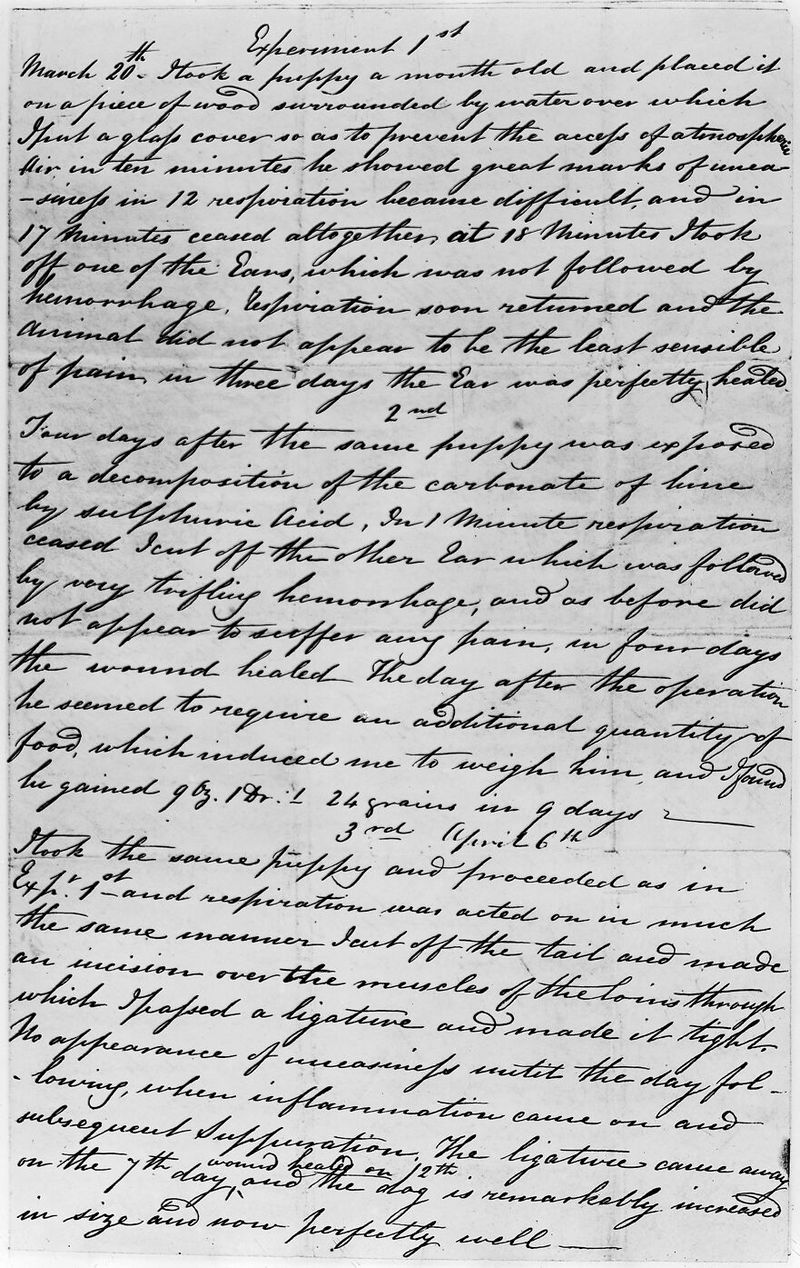 Experiment 1st
March 20th. I took a puppy a month old and placed it
on a piece of wood surrounded by water over which
I put a glass cover so as to prevent the access of atmospheric
Air in ten minutes he showed great marks of unea-
-siness in 12 respiration became difficult, and in
17 Minutes ceased altogether, at 18 Minutes I took
off one of the Ears, which was not followed by
hemorrhage, Respiration soon returned and the
Animal did not appear to be the least sensible
of pain, in three days the Ear was perfectly healed.
2nd
Four days after the same puppy was exposed
to a decomposition of the carbonate of lime
by sulphuric Acid, In 1 Minute respiration
ceased I cut off the other Ear which was followed
by very trifling hemorrhage, and as before did
not appear to suffer any pain, in four days
the wound healed The day after the operation
he seemed to require an additional quantity of
food, which induced me to weigh him, and I found
he gained 9 Oz. 1 Dr: & 24 grains in 9 days
3rd April 6th
I took the same puppy and proceeded as in
Expt 1st and respiration was acted on in much
the same manner I cut off the tail and made
an incision over the muscles of the loins through
which I passed a ligature and made it tight.
No appearance of uneasiness until the day fol-
-lowing, when inflammation came on and
subsequent Suppuration. The ligature came away
wound healed on 12th
on the 7th day, and the dog is remarkably increased
in size and now perfectly well